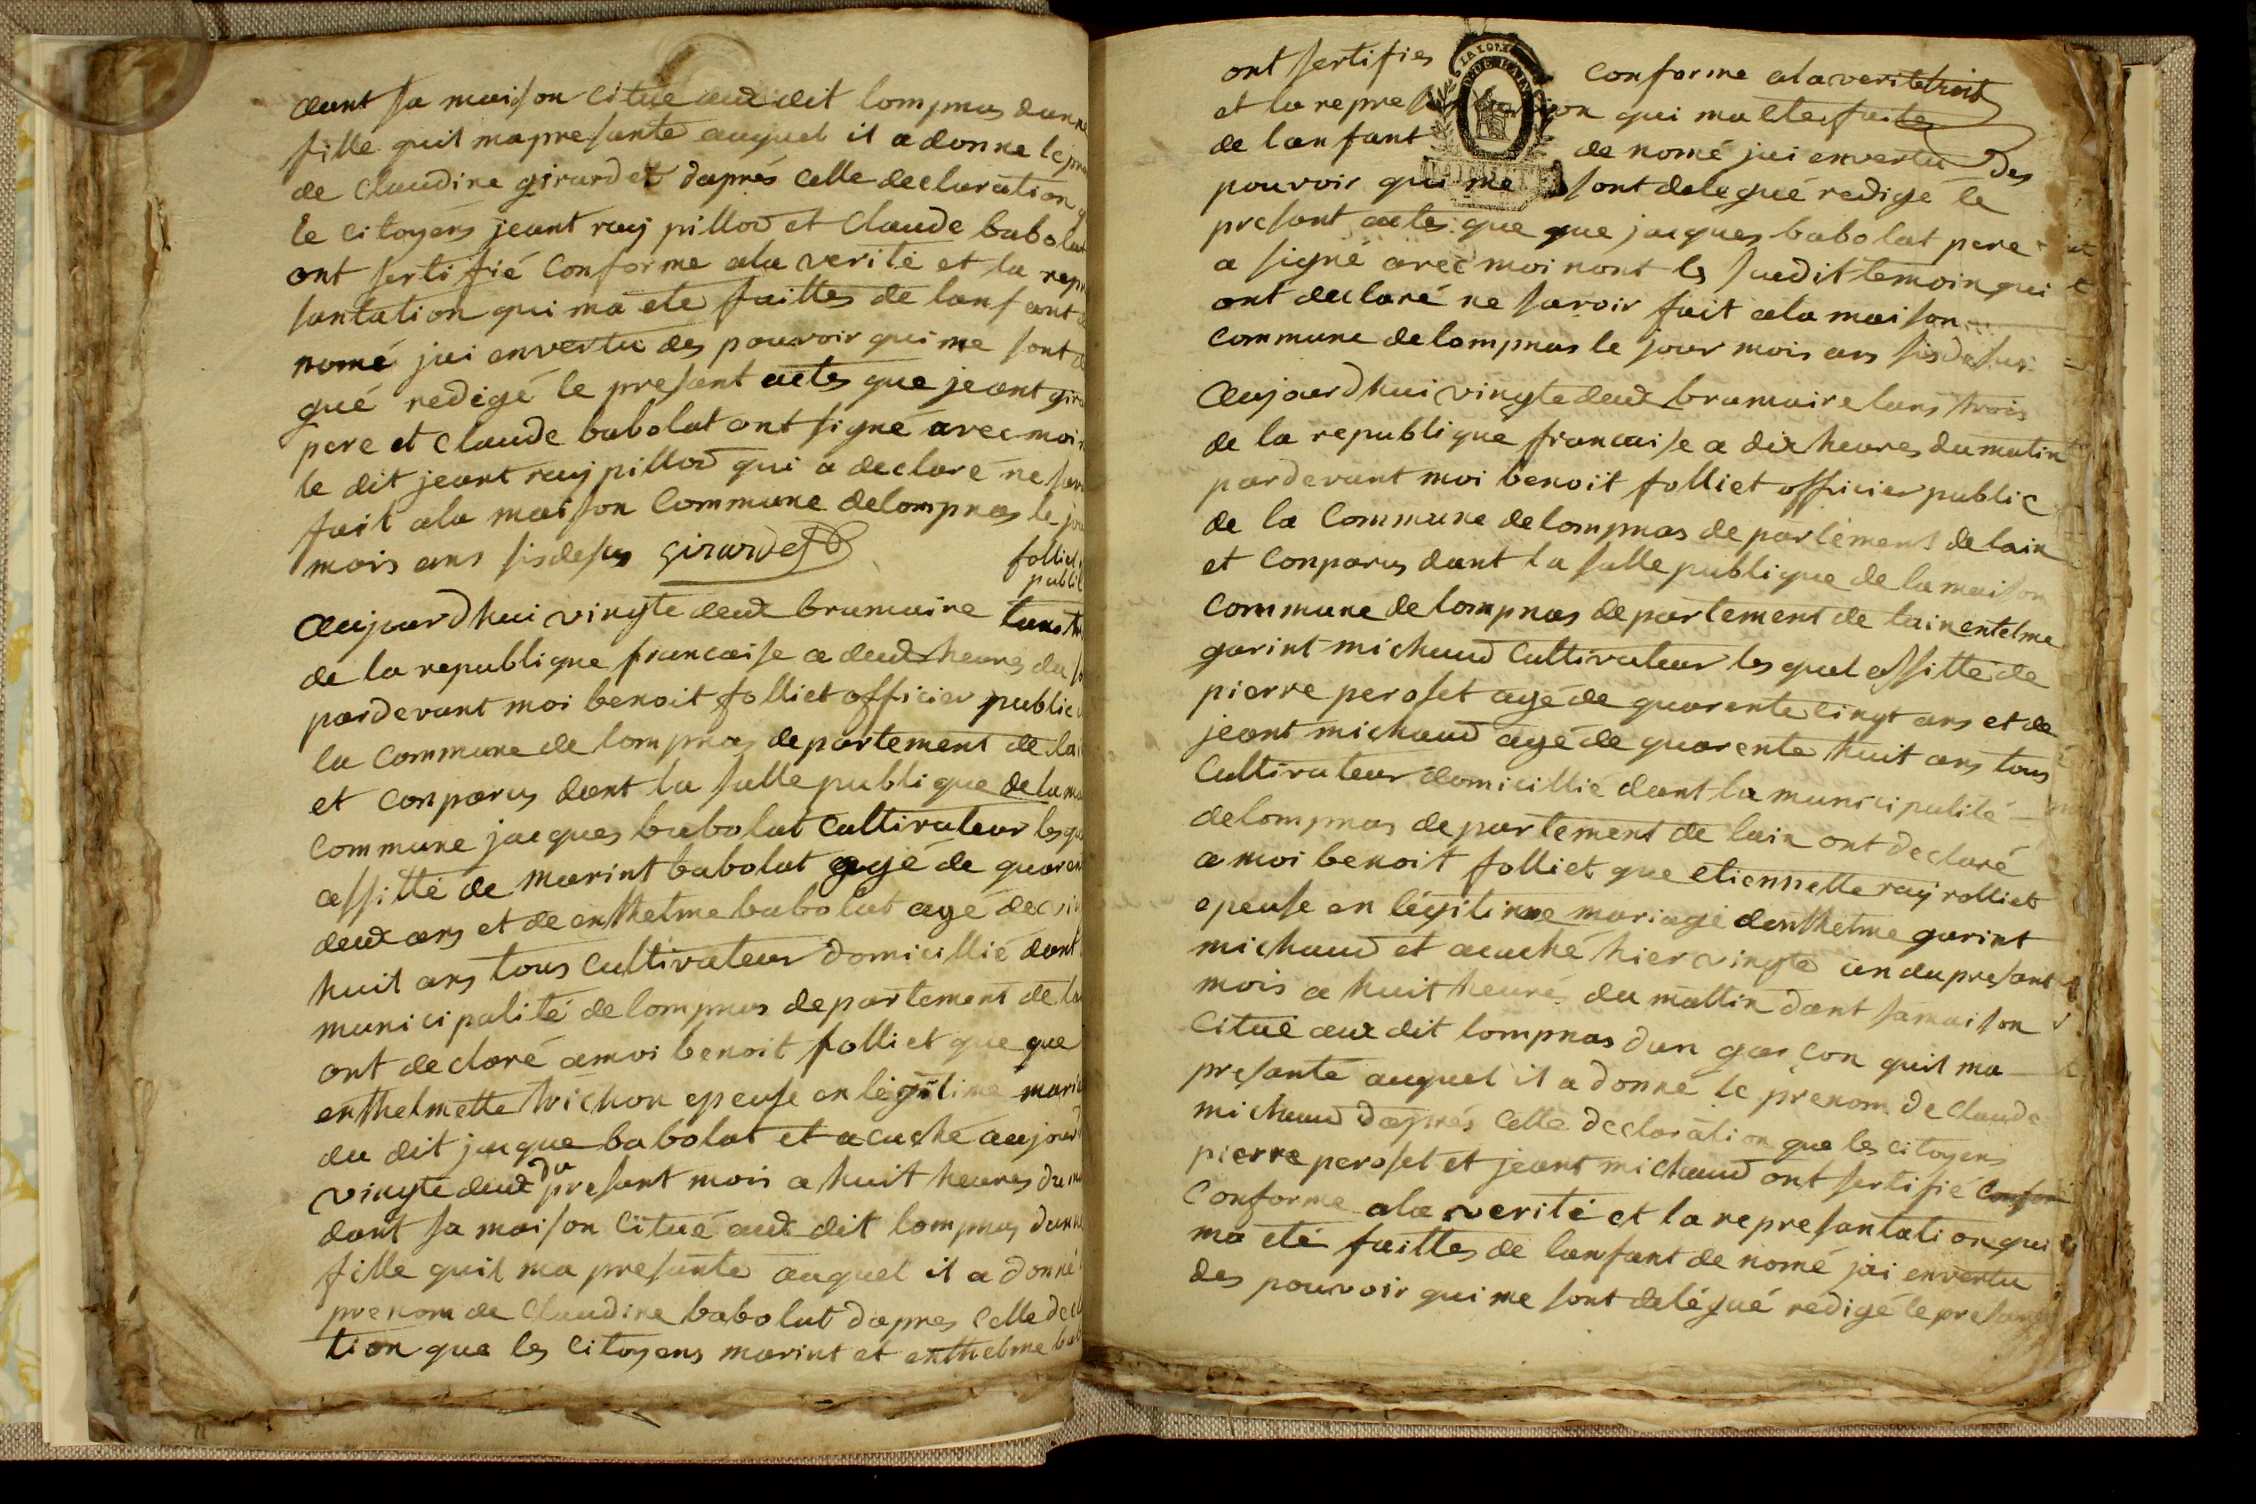 dant sa maison citué aux dit lompnas dunne
fille quil ma presante auquel il a donne le pre
de claudine girardet daprés celle declaration
le citoyens jeant ray pillod et claude babolat
ont sertifié conforme ala verité et la repre
santation qui ma ete faittes de lanfant
nomé jai envertu des pouvoir qui me sont
gué redigé le present actes que jeant gira
pere et claude babolat ont signé avec moi
le dit jeant ray pillod qui a declaré ne sav
fait ala maison commune de lompnas le jou
mois ans sisdesus Girardet
folliet
public
aujourdhui vingte deux brumaire lans
de la republique francaise a deux heures du
pardevant moi benoit folliet officier public
la commune de lompnas departement de lai
et conparus dant la salle publique de la ma
commune jacques babolat cultivateur lesqu
assitté de marint babolat agé de quaran
deux ans et de enthelme babolat agé de vin
huit ans tous cultivateur domicillié dant
municipalité de lompnas departement de la
ont declaré amoi benoit folliet que que
enthelmette trichon epeuse en légitime maria
du dit jacque babolat et acuché aujourd
vingte deux du presant mois a huit heures du ma
dant sa maison citué aux dit lompnas dunne
fille quil ma presante auquel il a donné
prenom de claudine babolat dapres celle decl
tion que les citoyens marint et enthelme bab
ont sertifies conforme ala verité
et la repre ion qui ma eté faites
de lanfant de nomé jai envertu des
pouvoir qui me sont delegué redigé le
presant actes que que jacques babolat pere
a signé avec moi nont ls susdit temoin qui
ont declaré ne savoir fait ala maison
commune de lompnas le jour mois ans sisdesus
aujourdhui vingte deux brumaire lans trois
de la republique francaise a dix heures du matin
pardevant moi benoit folliet officier public
de la commune de lompnas departement de lain
et conparus dant la salle publique de la maison
commune de lompnas departement de lain entelme
garint michaud cultivateur lesquel assitté de
pierre peroset agé de quarente cinqt ans et de
jeant michaud agé de quarente huit ans tous
cultivateur domicillié dant la municipalité
de lompnas departement de lain ont declaré
a moi benoit folliet que etiennette ray rolliet
epeuse en légitime mariage denthelme garint
michaud et acuché hier vingte un du presant
mois a huit heures du mattin dant samaison
citué aux dit lompnas dun garcon quil ma
presante auquel il a donné le prenom de claude
michaud daprés celle declaration que les citoyens
pierre peroset et jeant michaud ont sertifié confor
conforme ala verité et la represantation qui
ma eté faittes de lanfant de nomé jai envertu
des pouvoir qui me sont delégué redigé le presant